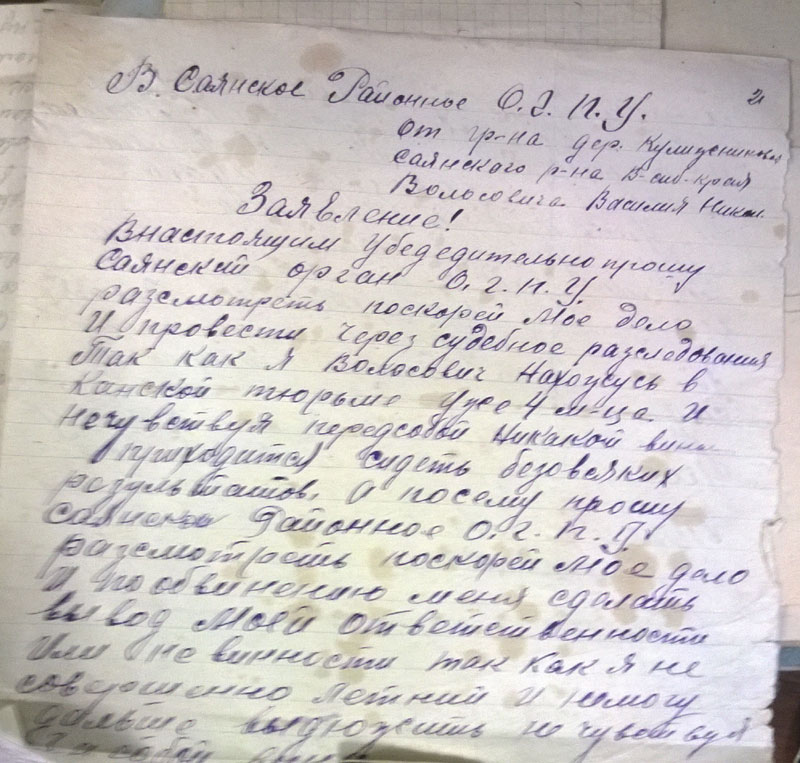 2
В Саянское Районное О.Г.П.У.
От гр-на дер. Кулижниковой
Саянского р-на В-сиб-края
Волосовича Василия Никол.
Заявление!
Внастоящим Убедедительно прошу
Саянский орган О.Г.П.У.
разсмотреть поскорей Мое дело
И провести через судебное разследования
Так как я Волосович Нахожусь в
Канской тюрьме Уже 4 м-ца И
Нечувствуя передсобой Никакой вины
приходится сидеть безовсяких
результатов. А посему прошу
Саянское Районное О.Г.П.У.
разсмотреть поскорей Мое дело
И по обвинению меня сделать
вывод Моей ответственности
Или не винности так как я не
совершенно летний И немогу
дальше выдюжить не чувствуя
За собой